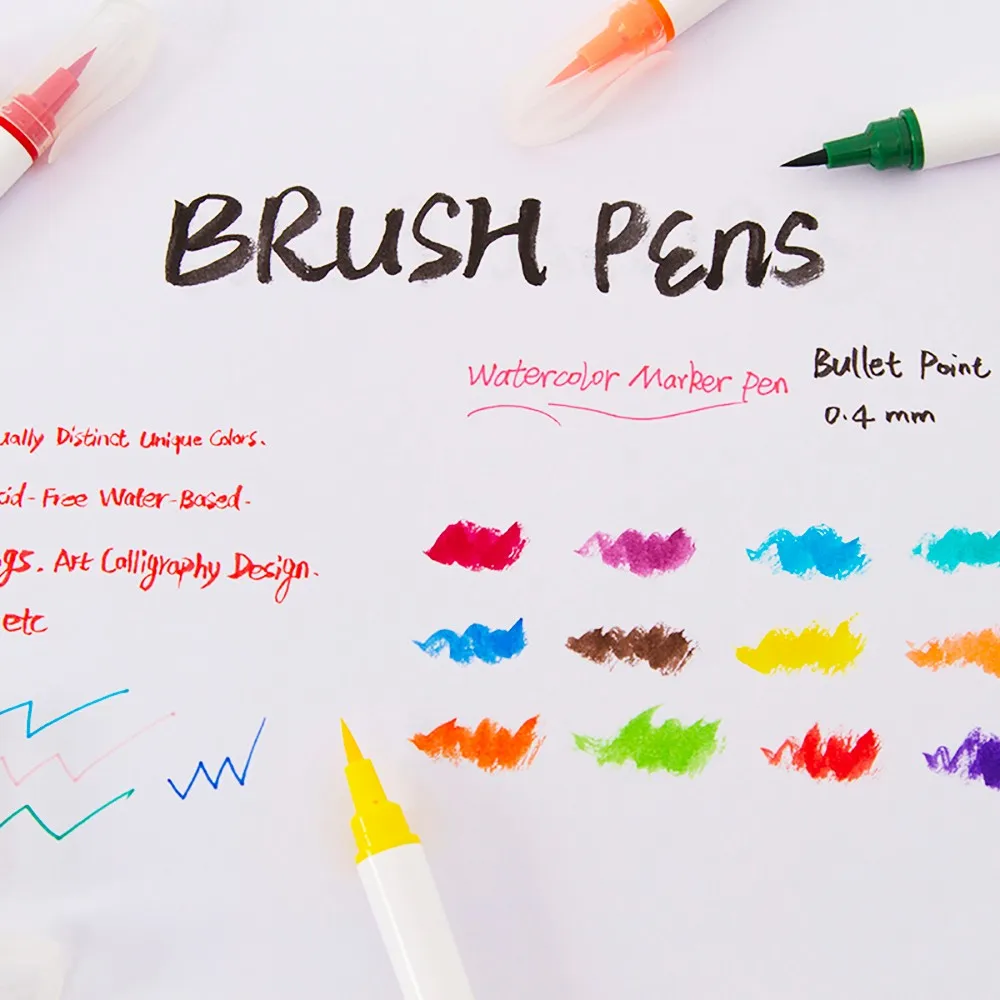 BRUSH PENS
Watercolor Marker Pen
Bullet Point
0.4 mm
ually Distinct Unique Colors.
cid-Free Water-Based.
gs. Art Calligraphy Design.
etc